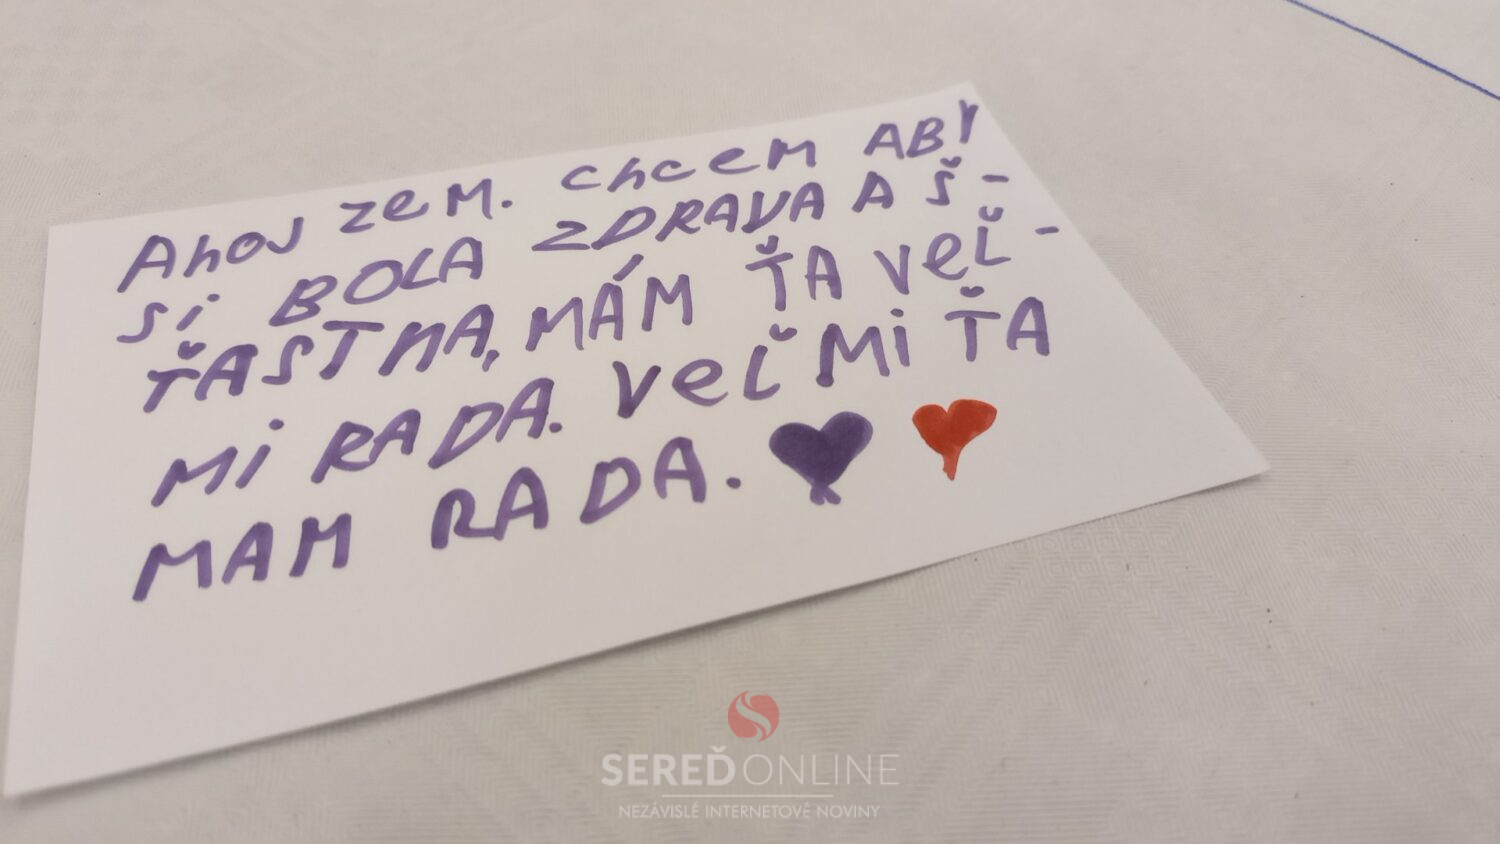 Ahoj zem. chcem ABY
Si BOLA ZDRAVA A Š-
ŤASTNA, MÁM ŤA VEĽ-
Mi RADA. VEĽMi ŤA
MAM RADA.
SEREĎONLINE
NEZÁVISLÉ INTERNETOVÉ NOVINY